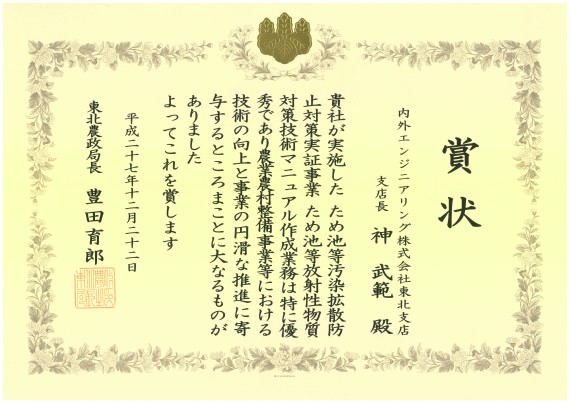 賞状
内外エンジニアリング株式会社東北支店
支店長 神 武範 殿
貴社が実施した ため池等汚染拡散防
止対策実証事業 ため池等放射性物質
対策技術マニュアル作成業務は特に優
秀であり農業農村整備事業等における
技術の向上と事業の円滑な推進に寄
与するところまことに大なるものが
ありました
よってこれを賞します
平成二十七年十二月二十二日
東北農政局長 豊田育郎